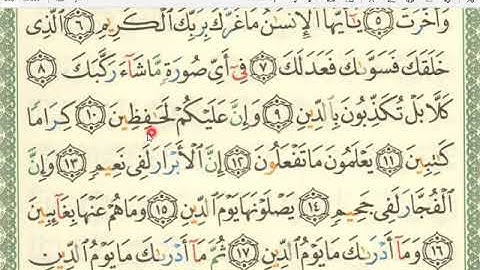 وَأَخَّرَتْ ٥ يَٰٓأَيُّهَا ٱلْإِنسَٰنُ مَا غَرَّكَ بِرَبِّكَ ٱلْكَرِيمِ ٦ ٱلَّذِى
خَلَقَكَ فَسَوَّىٰكَ فَعَدَلَكَ ٧ فِىٓ أَىِّ صُورَةٍ مَّا شَآءَ رَكَّبَكَ ٨
كَلَّا بَلْ تُكَذِّبُونَ بِٱلدِّينِ ٩ وَإِنَّ عَلَيْكُمْ لَحَٰفِظِينَ ١٠ كِرَامًا
كَٰتِبِينَ ١١ يَعْلَمُونَ مَا تَفْعَلُونَ ١٢ إِنَّ ٱلْأَبْرَارَ لَفِى نَعِيمٍ ١٣ وَإِنَّ
ٱلْفُجَّارَ لَفِى جَحِيمٍ ١٤ يَصْلَوْنَهَا يَوْمَ ٱلدِّينِ ١٥ وَمَا هُمْ عَنْهَا بِغَآئِبِينَ
١٦ وَمَآ أَدْرَىٰكَ مَا يَوْمُ ٱلدِّينِ ١٧ ثُمَّ مَآ أَدْرَىٰكَ مَا يَوْمُ ٱلدِّينِ